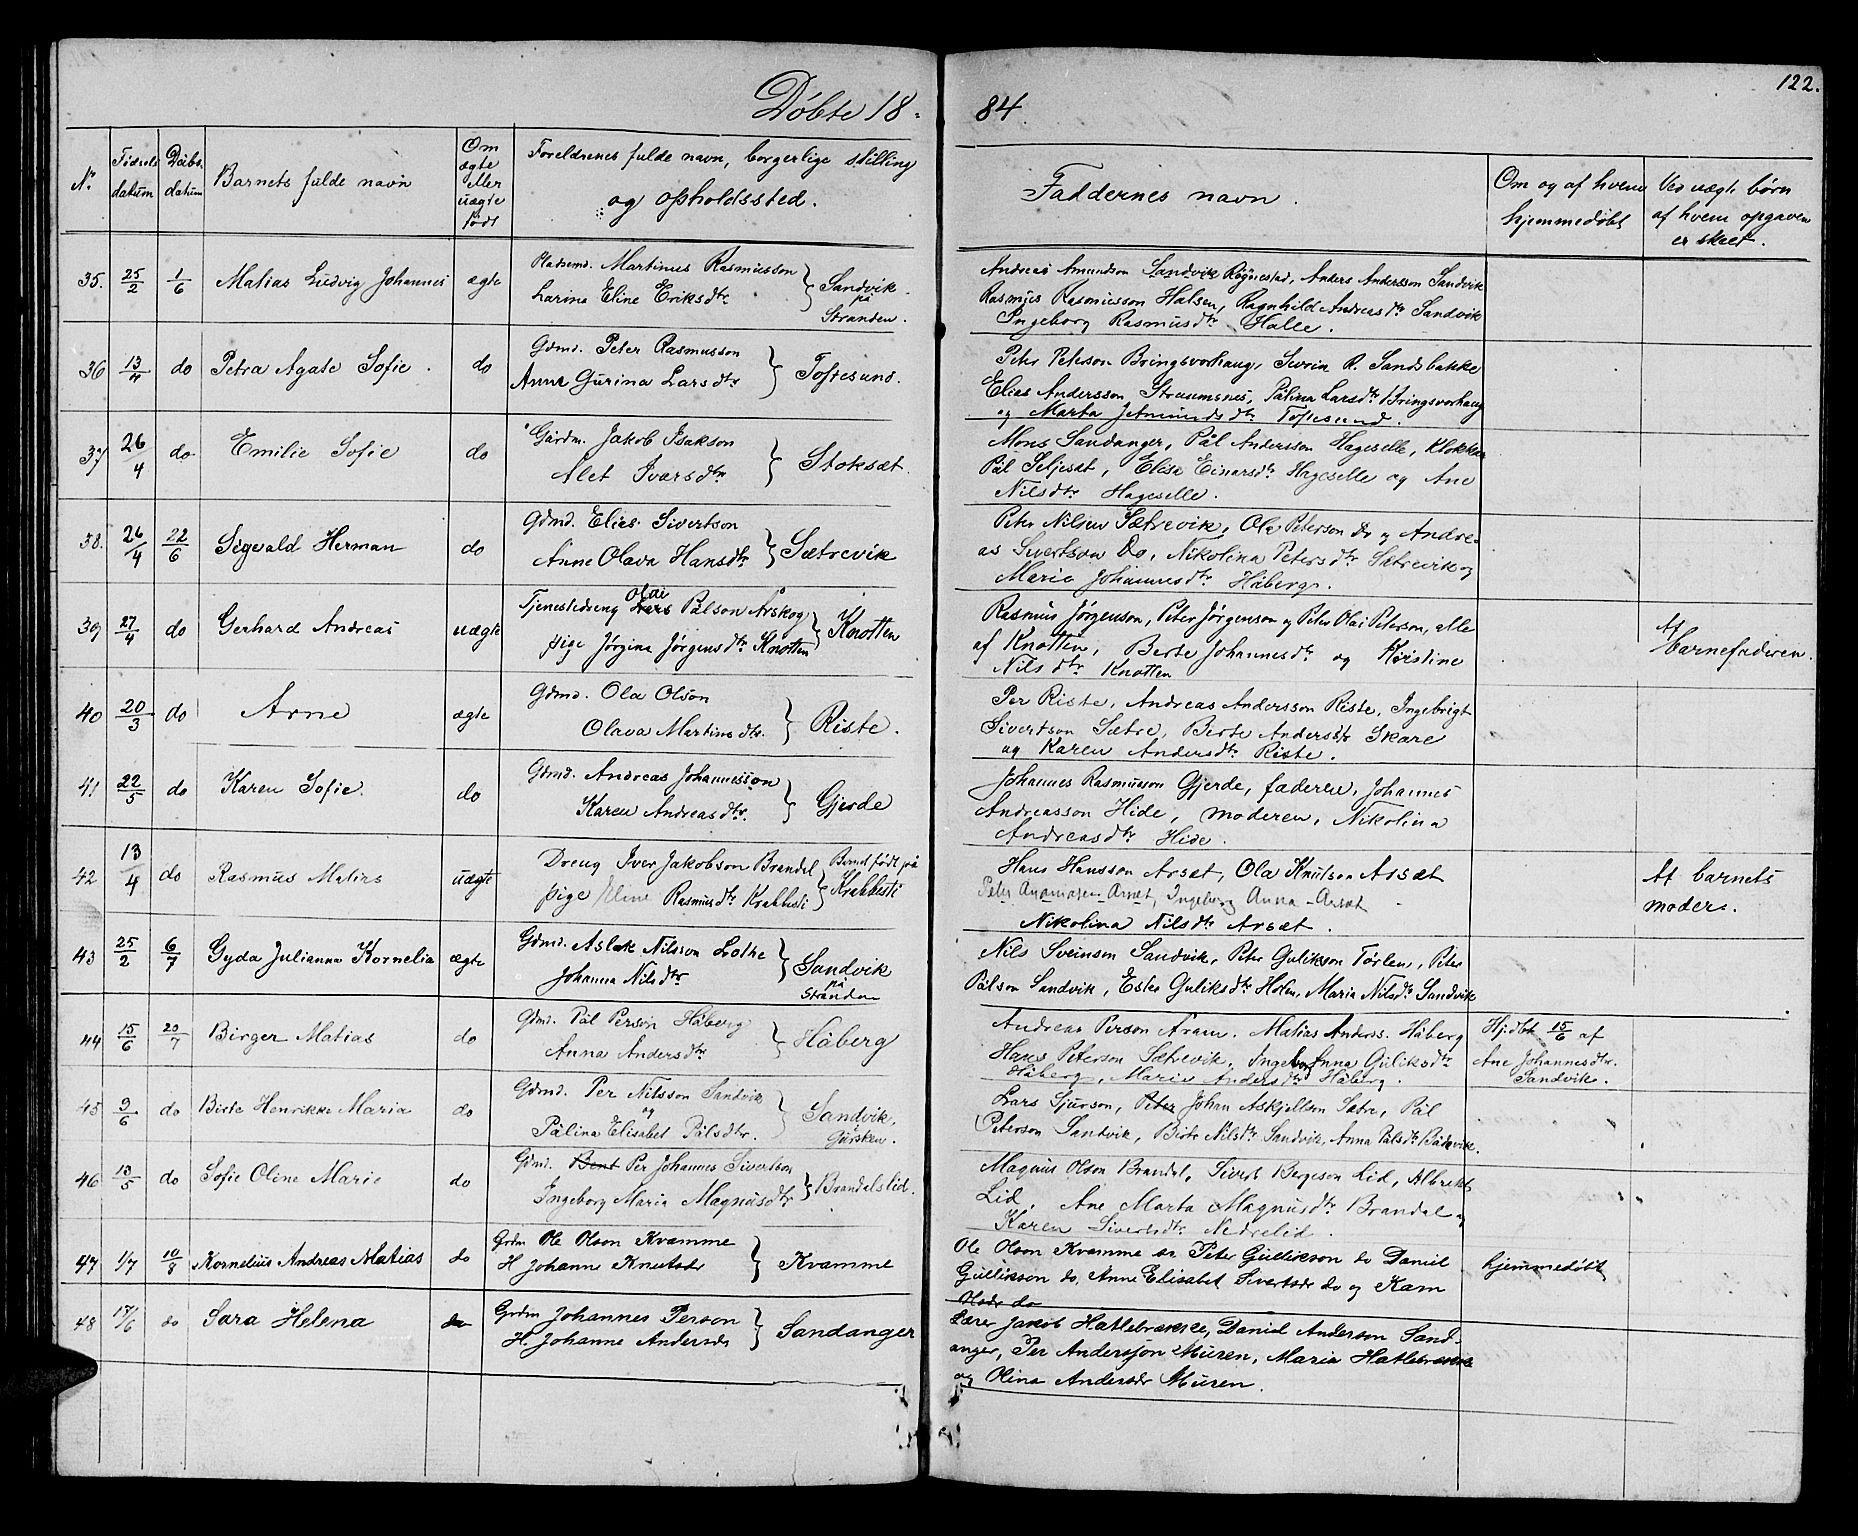 Döbte 18
84
122.
Nr
Födsels datum
Döbs datum
Barnets fulde navn
Om ægte eller uægte född
Foreldrenes fulde navn, borgerlige stilling
og opholdssted.
Faddernes navn.
Om og af hvem hjemmedöbt
Ved uægte börn af hvem opgaven er skeet.
35. 25/2 1/6 Matias Ludvig Johannes ægte Pladsmd. Martinus Rasmusson } Sandvik
Larina Eline Eriksdtr på Stranden.
Andreas Amundson Sandvik Røgnestad, Anders Andersson Sandvik
Rasmus Rasmusson Halsen, Ragnhild Andreasdtr Sandvik
Ingeborg Rasmusdtr Halle.
36 13/4 do Petra Agate Sofie. do Gdmd. Peter Rasmusson } Toftesund.
Anne Gurina Larsdtr
Peter Peterson Bringsvorhaug, Sivrin R. Sandsbakke
Elias Andersson Straumsnes, Pålina Larsdtr Bringsvorhaug
og Marta Jetmundsdtr Toftesund.
37 26/4 do Emilie Sofie do Gårdm. Jakob Isakson } Stoksæt.
Alet Ivarsdtr
Mons Sandanger, Pål Andersson Hageselle, Klokker
Pål Seljesæt, Elise Einarsdtr Hageselle og Ane
Nilsdtr Hageselle.
38. 26/4 22/6 Sigvald Herman do Gdmd. Elias Sivertson } Sætrevik
Anne Olava Hansdtr
Peter Nilsen Sætrevik, Ole Peterson do og Andre-
as Sivertson Do, Nikolina Petersdtr Sætrevik og
Marie Johannesdtr Håberg.
39 27/4 do Gerhard Andreas uægte Tjenestedreng Lars Olai Pålson Årskog } Knotten
pige Jørgina Jørgensdtr Knotten
Rasmus Jørgenson, Peter Jørgenson og Peter Olai Peterson, alle
af Knotten, Berte Johannesdtr og Kirstine
Nilsdtr Knotten
Af Barnefaderen.
40 20/3 do Arne ægte Gdmd. Ola Olson } Riste.
Olava Martinsdtr.
Per Riste, Andreas Andersson Riste, Ingebrigt
Sivertson Sætre, Berte Andersdtr Skare
og Karen Andersdtr Riste.
41 22/5 do Karen Sofie. do Gdmd. Andreas Johannesson } Gjerde
Karen Andreasdtr.
Johannes Rasmusson Gjerde, faderen, Johannes
Andreasson Hide, moderen, Nikolina
Andreasdtr Hide.
42 13/4 do Rasmus Matias uægte Dreng Iver Jakobson Brandal } Barnet født på
pige Eline Rasmusdtr Krabbesti Krabbesti
Hans Hansson Arsæt, Ola Knutson Arsæt
Peter Ananiasen Arsæt, Ingeborg Anna Arsæt
Nikolina Nilsdtr Arsæt.
Af barnets moder.
43 25/2 6/7 Gyda Julianna Kornelia ægte Gdmd. Aslak Nilsson Lothe } Sandvik
Johanna Nilsdtr på Stranden
Nils Sveinson Sandvik, Peter Gulikson Törlen, Peter
Pålson Sandvik, Ester Guliksdtr Holen, Maria Nilsdtr Sandvik
44 15/6 20/7 Birger Matias do Gdmd. Pål Person Håberg } Håberg
Anna Andersdtr
Andreas Person Aram. Matias Anderss. Håberg
Hans Peterson Sætrevik, Ingeborg Anna Guliksdtr
Håberg, Marie Andersdtr Håberg.
Hj.döbt 15/6 af
Ane Johannesdtr.
Sandvik.
45 9/6 do Birte Henrikke Maria do Gdmd. Per Nilsson Sandvik } Sandvik,
og
Pålina Elisabet Pålsdtr. Gürsken.
Lars Sjurson, Peter Johan Askjellson Sætre, Pål
Peterson Sandvik, Birte Nilsdtr Sandvik, Anna Pålsdtr
46 13/5 do Sofie Oline Marie do Gdmd. Bent Per Johannes Sivertson } Brandalslid.
Ingeborg Maria Magnusdtr
Magnus Olson Brandal, Sivert Bergeson Lid, Albrekt
Lid, Ane Marta Magnusdtr Brandal og
Karen Sivertsdtr Nedrelid.
47 1/7 10/8 Kornelius Andreas Matias do Grdm Ole Olson Kvamme } Kvamme
H Johanne Knutsdr
Ole Olson Kvamme sr Peter Gullikson do Daniel
Gullikson do, Anne Elisabet Sivertsdr do og Karn
Olsdr do
hjemmedöbt
48 17/6 do Sara Helena do Grdm Johannes Person } Sandanger
H. Johanne Andersdr
Lærer Jakob Hatlebrække, Daniel Anderson Sand-
anger, Per Andersson Muren, Maria Hatlebrække
og Olina Andersdr Muren.